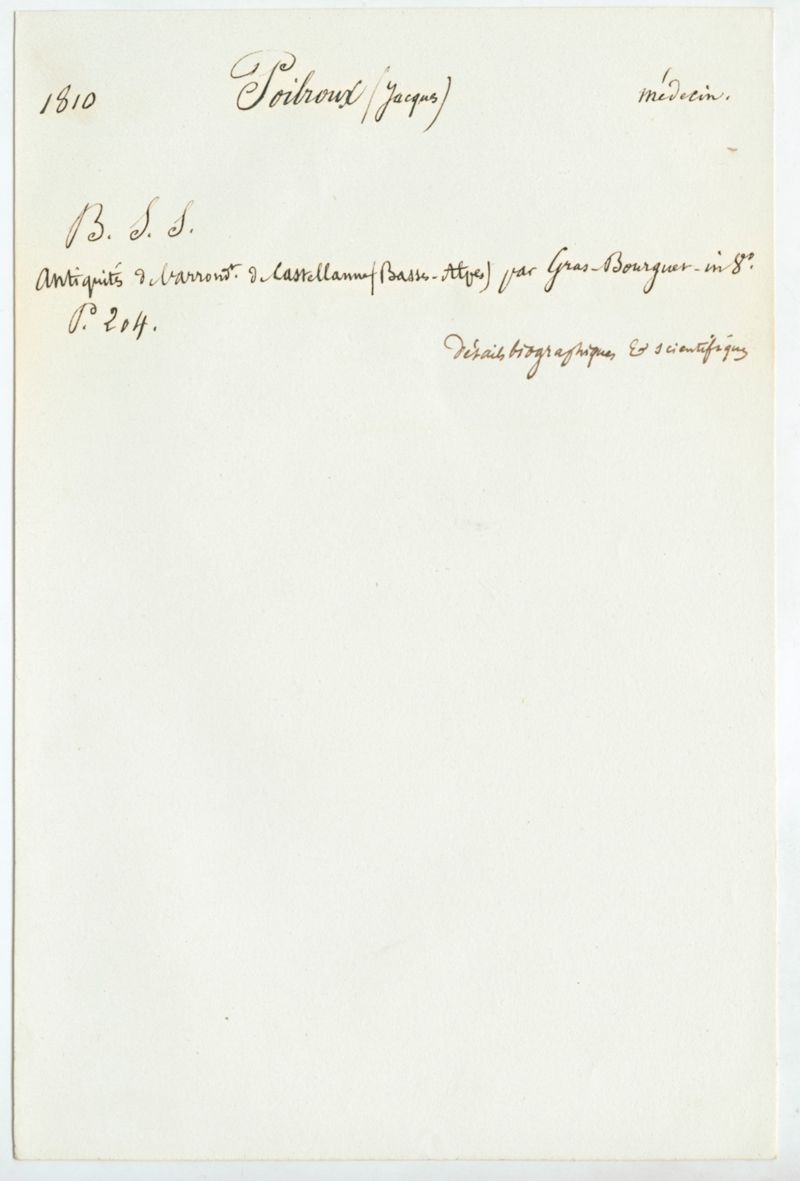 1810 Poilroux (Jacques) médecin.
B. S. S.
Antiquités de l'arrondt. de Castellanne (Basses-Alpes) par Gras-Bourguet - in 8º.
P. 204.
Détails biographiques & scientifiques